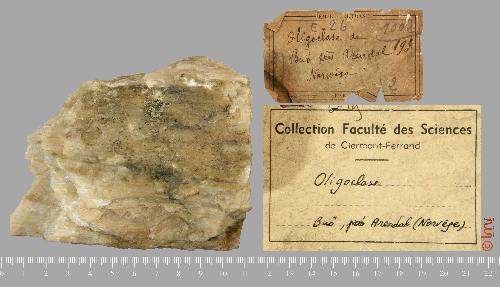 E-26
Oligoclase de
Buö près Arendal
Norwège
Collection Faculté des Sciences
de Clermont-Ferrand
Oligoclase
Buö, près Arendal (Norvège)
©lmv
0 1 2 3 4 5 6 7 8 9 10 11 12 13 14 15 16 17 18 19 20 21 22